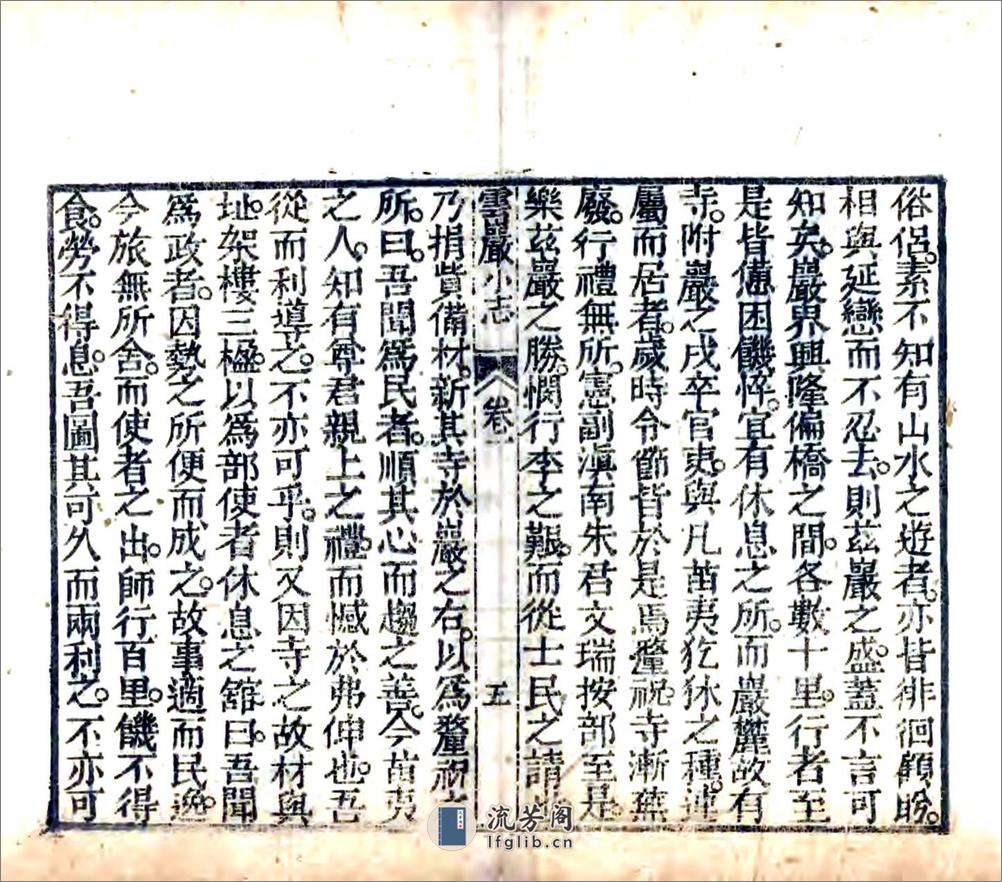 俗侶。素不知有山水之遊者。亦皆徘徊顧盼。
相與延戀而不忍去。則茲巖之盛。蓋不言可
知矣。巖界興隆偏橋之間。各數十里。行者至
是皆憊困饑悴。宜有休息之所。而巖麓故有
寺。附巖之戍卒官吏。與凡苗夷犵狇之種。連
屬而居者。歲時令節。皆於是焉釐祝。寺漸蕪
廢。行禮無所。憲副滇南朱君文瑞按部至是。
樂茲巖之勝。憫行李之艱。而從士民之請。
雲巖小志
卷一
五
乃捐貲備材。新其寺於巖之右。以爲釐祝之
所。曰。吾聞爲民者。順其心而趨之善。今苗夷
之人。知有尊君親上之禮。而憾於弗伸也。吾
從而利導之。不亦可乎。則又因寺之故材與
址。架樓三楹。以爲部使者休息之舘。曰。吾聞
爲政者。因勢之所便而成之。故事適而民逸。
今旅無所舍。而使者之出。師行百里。饑不得
食。勞不得息。吾圖其可久而兩利之。不亦可
流芳阁
lfglib.cn